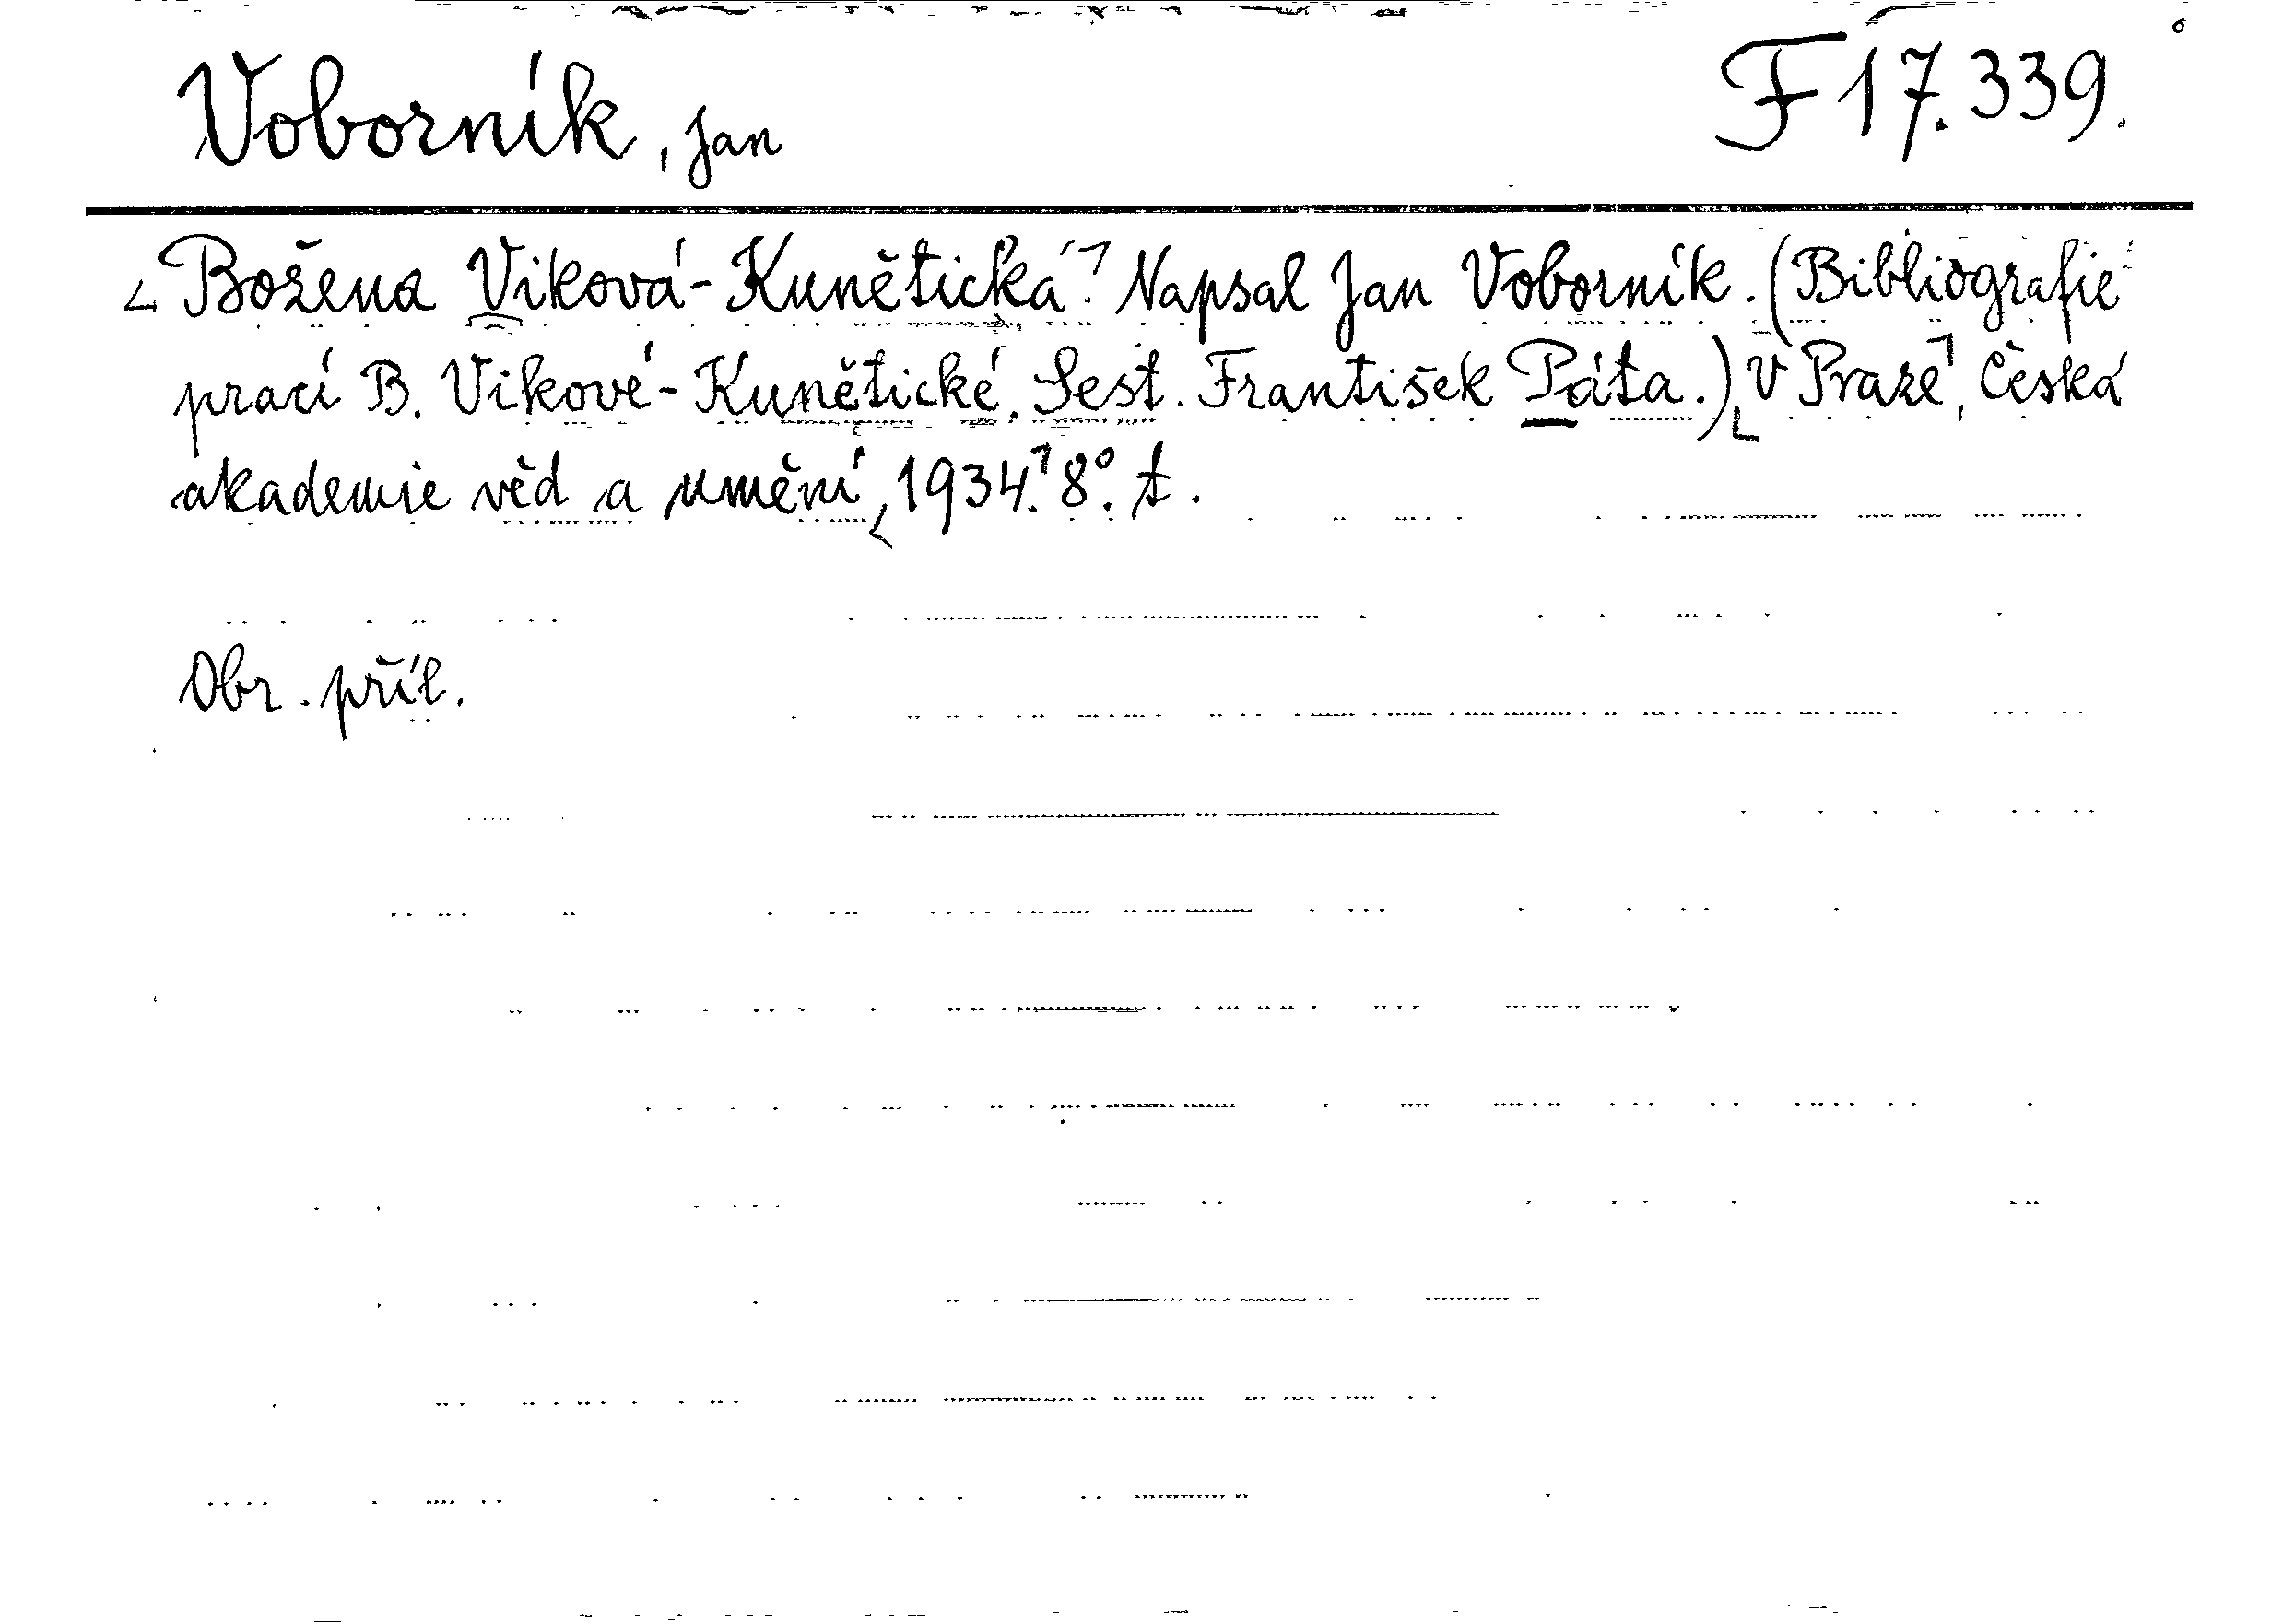 Voborník, Jan
F 17.339.
Božena Viková-Kunětická. Napsal Jan Voborník. (Bibliografie
prací B. Vikové-Kunětické. Sest. František Páta.) V Praze, Česká
akademie věd a umění, 1934. 8°. t.
Obr. příl.